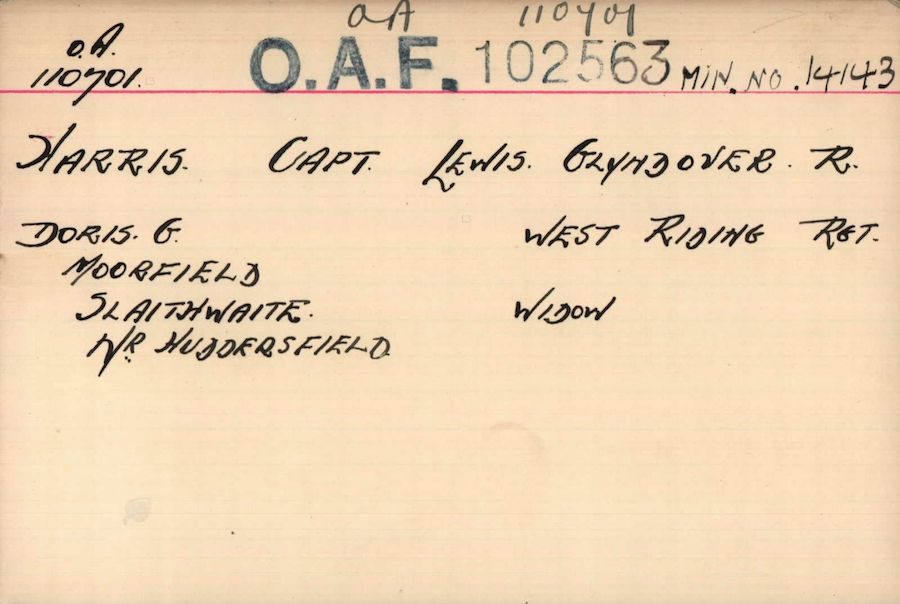 OA 110701
O.A. O.A.F. 102563 MIN. NO. 14143
110701.
HARRIS. CAPT. LEWIS. GLYNDOVER. R.
DORIS. G. WEST RIDING RGT.
MOORFIELD
SLAITHWAITE. WIDOW
NR HUDDERSFIELD